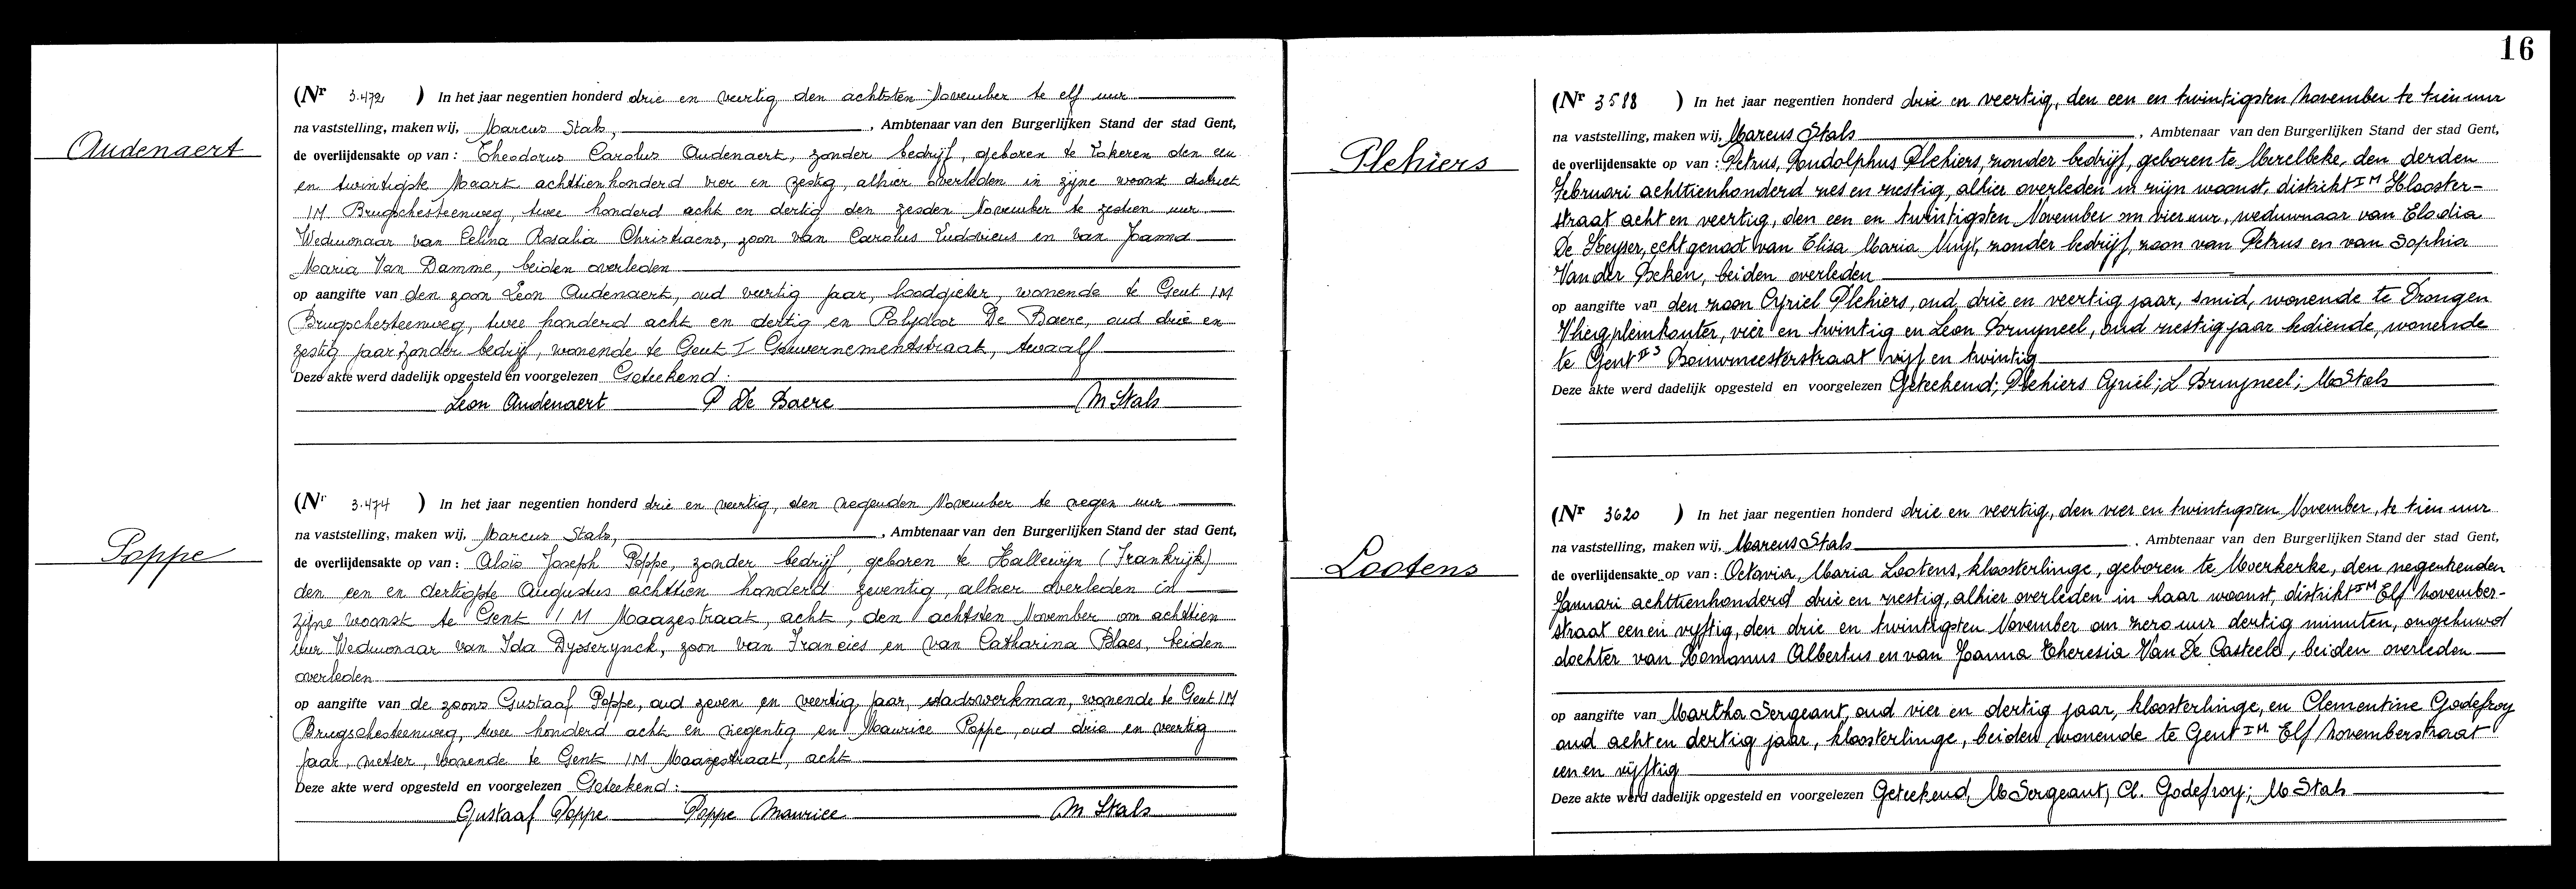 Audenaert
(Nr 3.472 ) In het jaar negentien honderd drie en veertig den achtsten November te elf uur
na vaststelling, maken wij, Marcus Stals, , Ambtenaar van den Burgerlijken Stand der stad Gent,
de overlijdensakte op van : Theodorus Carolus Audenaert, zonder bedrijf, geboren te Lokeren den een
en twintigste Maart achttienhonderd vier en zestig, alhier overleden in zijne woonst district
IM Brugschesteenweg, twee honderd acht en dertig den zesden November te zestien uur
Weduwnaar van Celina Rosalia Christiaens, zoon van Carolus Ludovicus en van Joanna
Maria Van Damme, beiden overleden
op aangifte van den zoon Leon Audenaert, oud veertig jaar, loodgieter, wonende te Gent IM
Brugschesteenweg, twee honderd acht en dertig en Polydoor De Baere, oud drie en
zestig jaar zonder bedrijf, wonende te Gent I Gouvernementstraat, twaalf
Deze akte werd dadelijk opgesteld en voorgelezen Geteekend:
Leon Audenaert P De Baere M Stals
Poppe
(Nr 3.474 ) In het jaar negentien honderd drie en veertig, den negenden November te negen uur
na vaststelling, maken wij, Marcus Stals, , Ambtenaar van den Burgerlijken Stand der stad Gent,
de overlijdensakte op van : Aloïs Joseph Poppe, zonder bedrijf, geboren te Hallewijn (Frankrijk)
den een en dertigste Augustus achttien honderd zeventig, alhier overleden in
zijne woonst te Gent IM Maazestraat, acht, den achtsten November om achttien
uur Weduwnaar van Ida Dyserynck, zoon van Francies en van Catharina Blaes, beiden
overleden
op aangifte van de zoons Gustaaf Poppe, oud zeven en veertig jaar, stadswerkman, wonende te Gent IM
Brugschesteenweg, twee honderd acht en negentig en Maurice Poppe, oud drie en veertig
jaar, metser, wonende te Gent IM Maazestraat, acht
Deze akte werd opgesteld en voorgelezen Geteekend:
Gustaaf Poppe Poppe Maurice M Stals
16
Plehiers
(Nr 3588 ) In het jaar negentien honderd drie en veertig, den een en twintigsten November te tien uur
na vaststelling, maken wij, Marcus Stals , Ambtenaar van den Burgerlijken Stand der stad Gent,
de overlijdensakte op van : Petrus, Rudolphus Plehiers, zonder bedrijf, geboren te Merelbeke, den derden
Februari achttienhonderd zes en zestig, alhier overleden in zijn woonst, distrikt IM Klooster-
straat acht en veertig, den een en twintigsten November om vier uur, weduwnaar van Elodia
De Keyser, echtgenoot van Elisa Maria Nuyt, zonder bedrijf, zoon van Petrus en van Sophia
Van der Beken, beiden overleden
op aangifte van den zoon Cyriel Plehiers, oud, drie en veertig jaar, smid, wonende te Drongen
Vliegpleinkouter, vier en twintig en Leon Bruyneel, oud zestig jaar bediende, wonende
te Gent II3 Bouwmeesterstraat vijf en twintig
Deze akte werd dadelijk opgesteld en voorgelezen Geteekend; Plehiers Cyriel; L Bruyneel; M Stals
Lootens
(Nr 3620 ) In het jaar negentien honderd drie en veertig, den vier en twintigsten November, te tien uur
na vaststelling, maken wij, Marcus Stals . Ambtenaar van den Burgerlijken Stand der stad Gent,
de overlijdensakte op van : Octavia, Maria Lootens, kloosterlinge, geboren te Moerkerke, den negentienden
Januari achttienhonderd drie en zestig, alhier overleden in haar woonst, distrikt IM Elf November-
straat een en vijftig, den drie en twintigsten November om zero uur dertig minuten, ongehuwd
dochter van Romanus Albertus en van Joanna Theresia Van De Casteele, beiden overleden
op aangifte van Martha Sergeant, oud vier en dertig jaar, kloosterlinge, en Clementine Godefroy
oud acht en dertig jaar, kloosterlinge, beiden wonende te Gent IM Elf Novemberstraat
een en vijftig
Deze akte werd dadelijk opgesteld en voorgelezen Geteekend, M Sergeant; Cl. Godefroy; M Stals